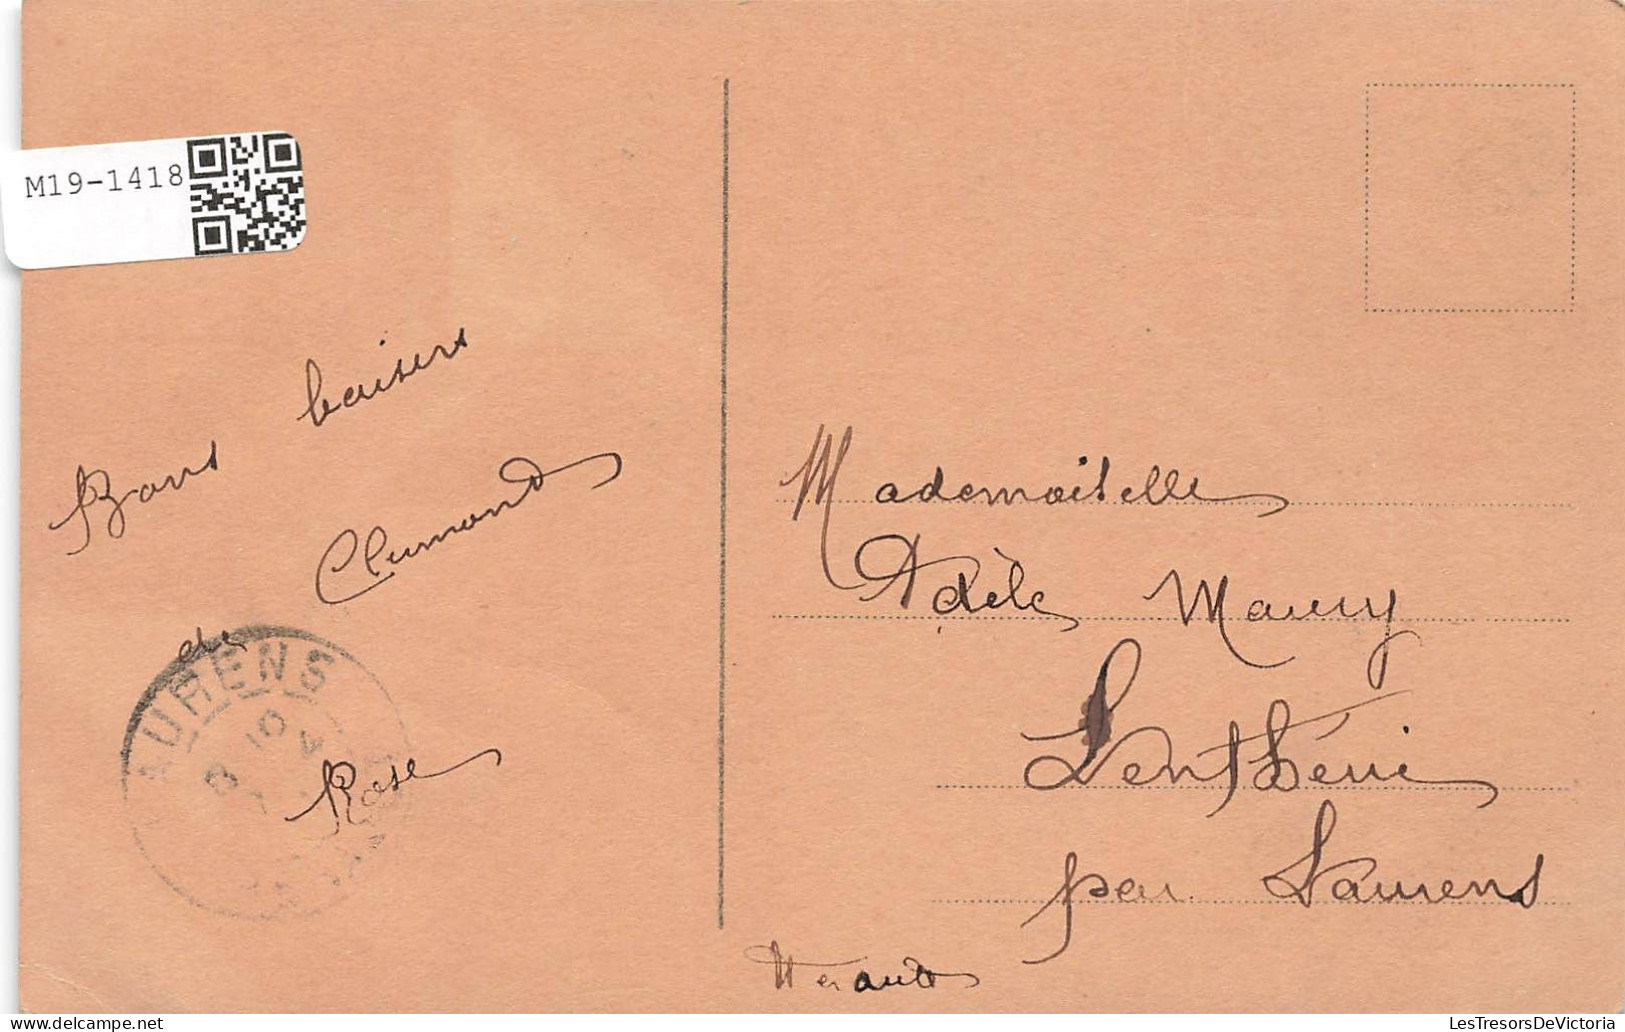 M19-1418
Bons baisers
de Clermont
Rose
AURENS
10
Mademoiselle
Adèle Maury
Lenthéric
par Laurens
Hérault
LesTresorsDeVictoria